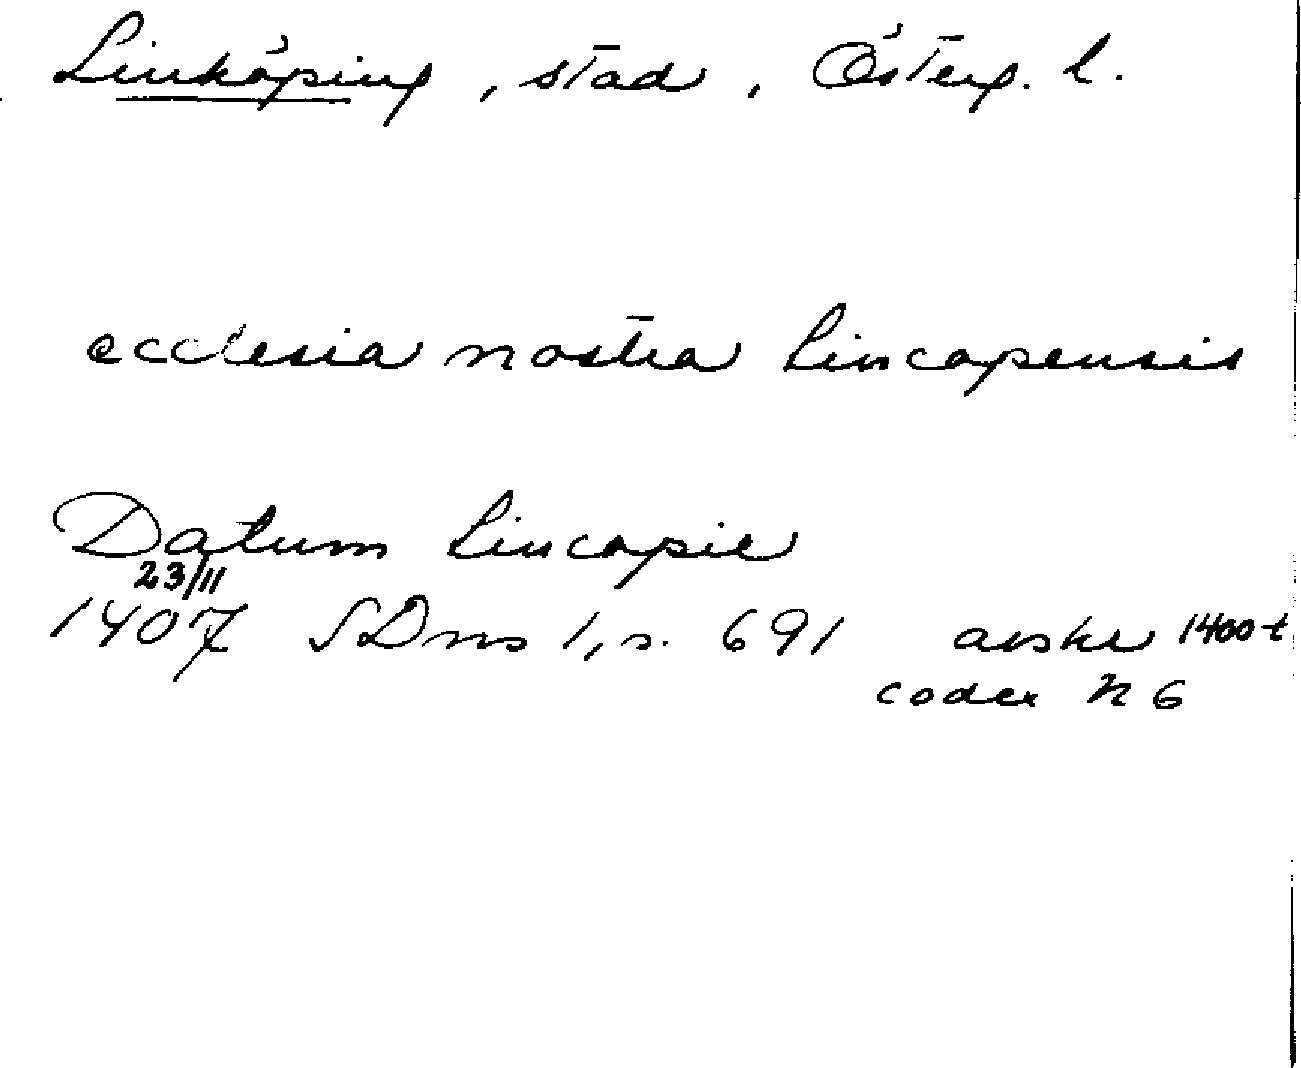 Linköping, stad, Österg. l.
ecclesia nostra Lincopensis
Datum Lincopie
23/11
1407 SDns 1, s. 691 avskr 1400-t
codex N 6